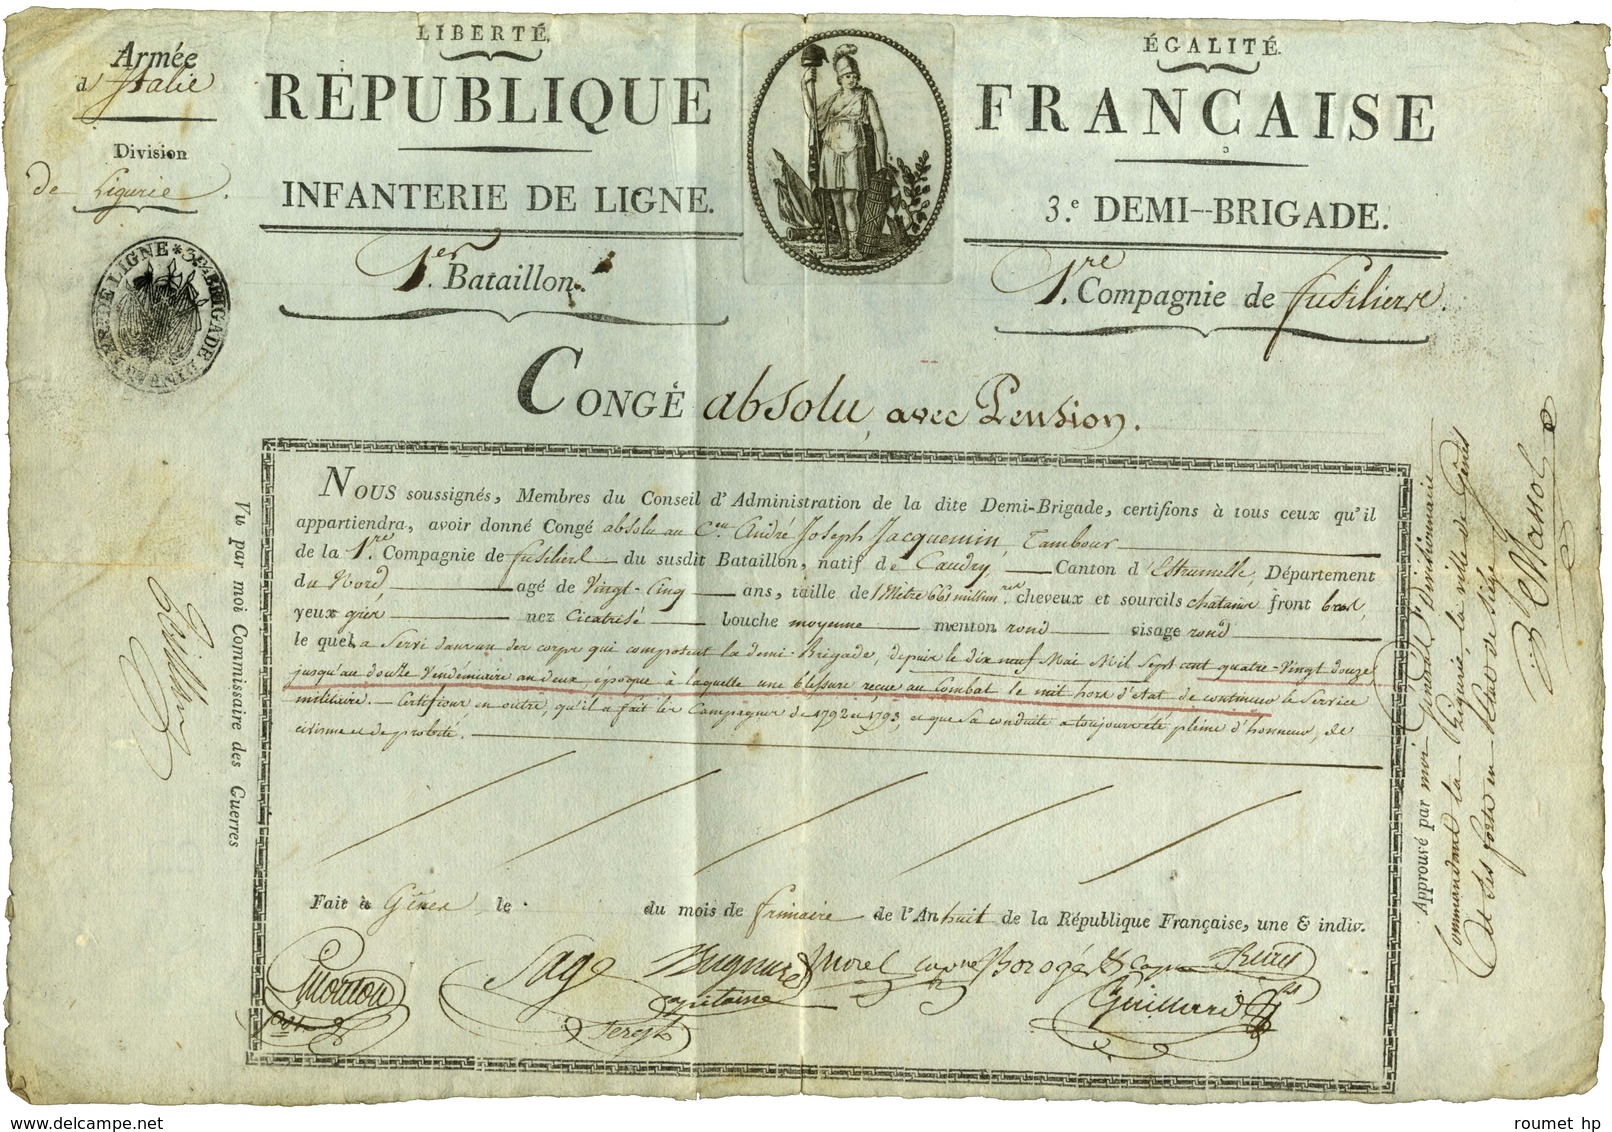 Armée
d'Italie
Division
de Ligurie.
LIBERTÉ.
ÉGALITÉ.
RÉPUBLIQUE FRANÇAISE
INFANTERIE DE LIGNE. 3.e DEMI-BRIGADE.
1.er Bataillon. 1.re Compagnie de fusiliers.
CONGÉ absolu, avec Pension.
NOUS soussignés, Membres du Conseil d'Administration de la dite Demi-Brigade, certifions à tous ceux qu'il
appartiendra, avoir donné Congé absolu au C.en André Joseph Jacquemin, Tambour
de la 1.re Compagnie de fusiliers du susdit Bataillon, natif de Caudry, Canton d'Estrumelle, Département
du Nord, agé de Vingt-Cinq ans, taille de 1 Mètre 661 millim.res cheveux et sourcils chatains front bas,
yeux gris nez Cicatrisé bouche moyenne menton rond visage rond
le quel a Servi dans un des corps qui composent la demi-Brigade, depuis le dix neuf Mai Mil Sept cent quatre-Vingt douze
jusqu'au douze Vendémiaire an deux, époque à laquelle une blessure reçue au Combat le mit hors d'état de continuer le Service
militaire. Certifions en outre, qu'il a fait les Campagnes de 1792 et 1793, et que sa conduite a toujours été pleine d'honneur, de
civisme et de probité.
Fait à Gênes le du mois de frimaire de l'An huit de la République Française, une & indiv.
Sage
Morel
capitaine
Guillard
Vu par moi Commissaire des Guerres
Approuvé par moi Général Divisionnaire
Commandant la Ligurie, la ville de Gênes
et ses forts en état de siège
Massol
3e 1/2 BRIGADE D'INFANTERIE DE LIGNE
roumet hp